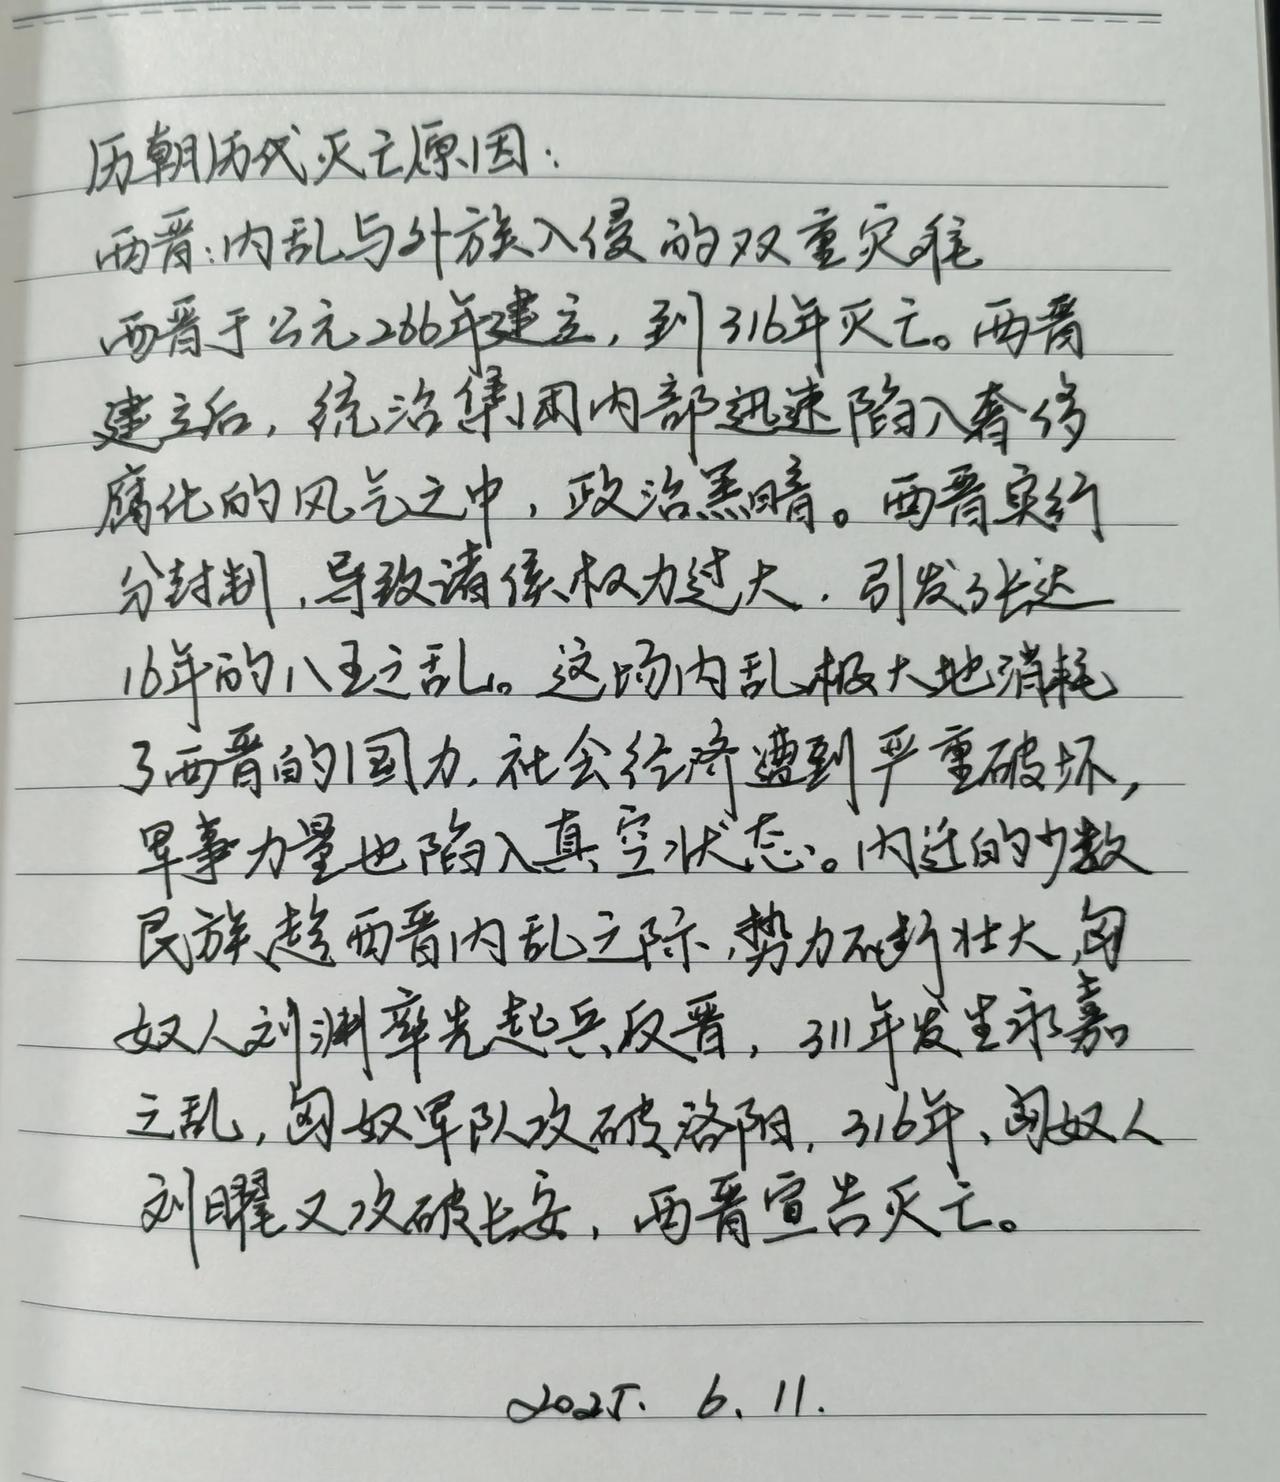 历朝历代灭亡原因：
西晋：内乱与外族入侵的双重灾难
西晋于公元266年建立，到316年灭亡。西晋
建立后，统治集团内部迅速陷入奢侈
腐化的风气之中，政治黑暗。西晋实行
分封制，导致诸侯权力过大，引发了长达
16年的八王之乱。这场内乱极大地消耗
了西晋的国力，社会经济遭到严重破坏，
军事力量也陷入真空状态。内迁的少数
民族趁西晋内乱之际，势力不断壮大，匈
奴人刘渊率先起兵反晋，311年发生永嘉
之乱，匈奴军队攻破洛阳，316年，匈奴人
刘曜又攻破长安，西晋宣告灭亡。
2025.6.11.